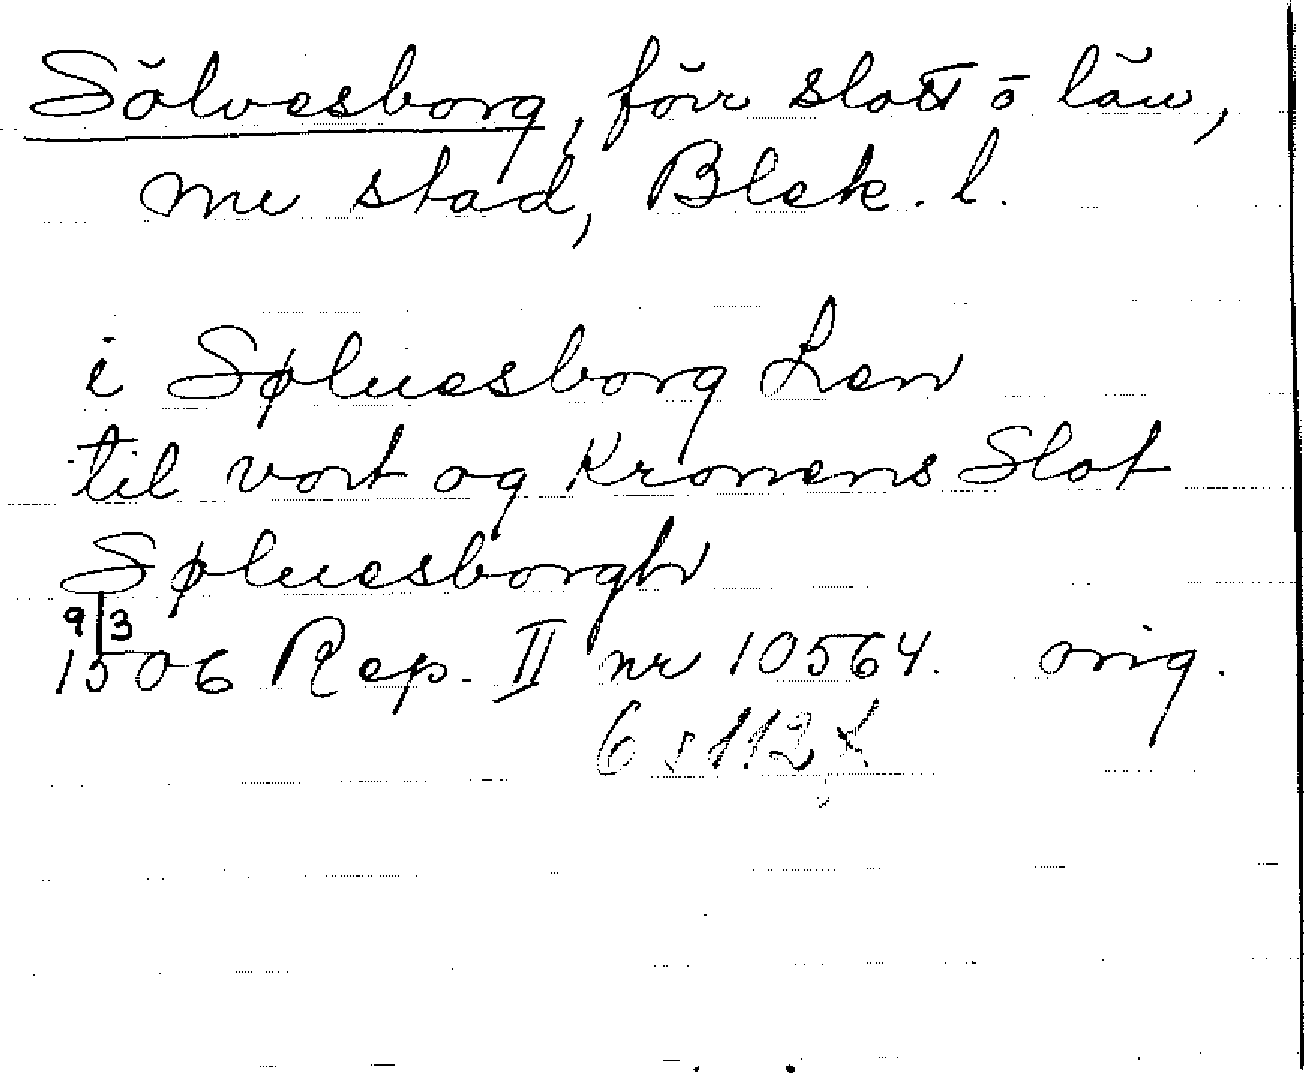 Sölvesborg, förr slott o län,
nu stad, Blek. l.
i Søluesborg Len
til vort og Kronens Slot
Søluesborgh
9/3
1506 Rep. II nr 10564. orig.
6 s 112